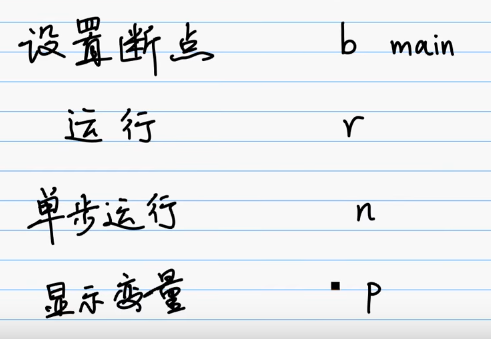 设置断点 b main
运行 r
单步运行 n
显示变量 p